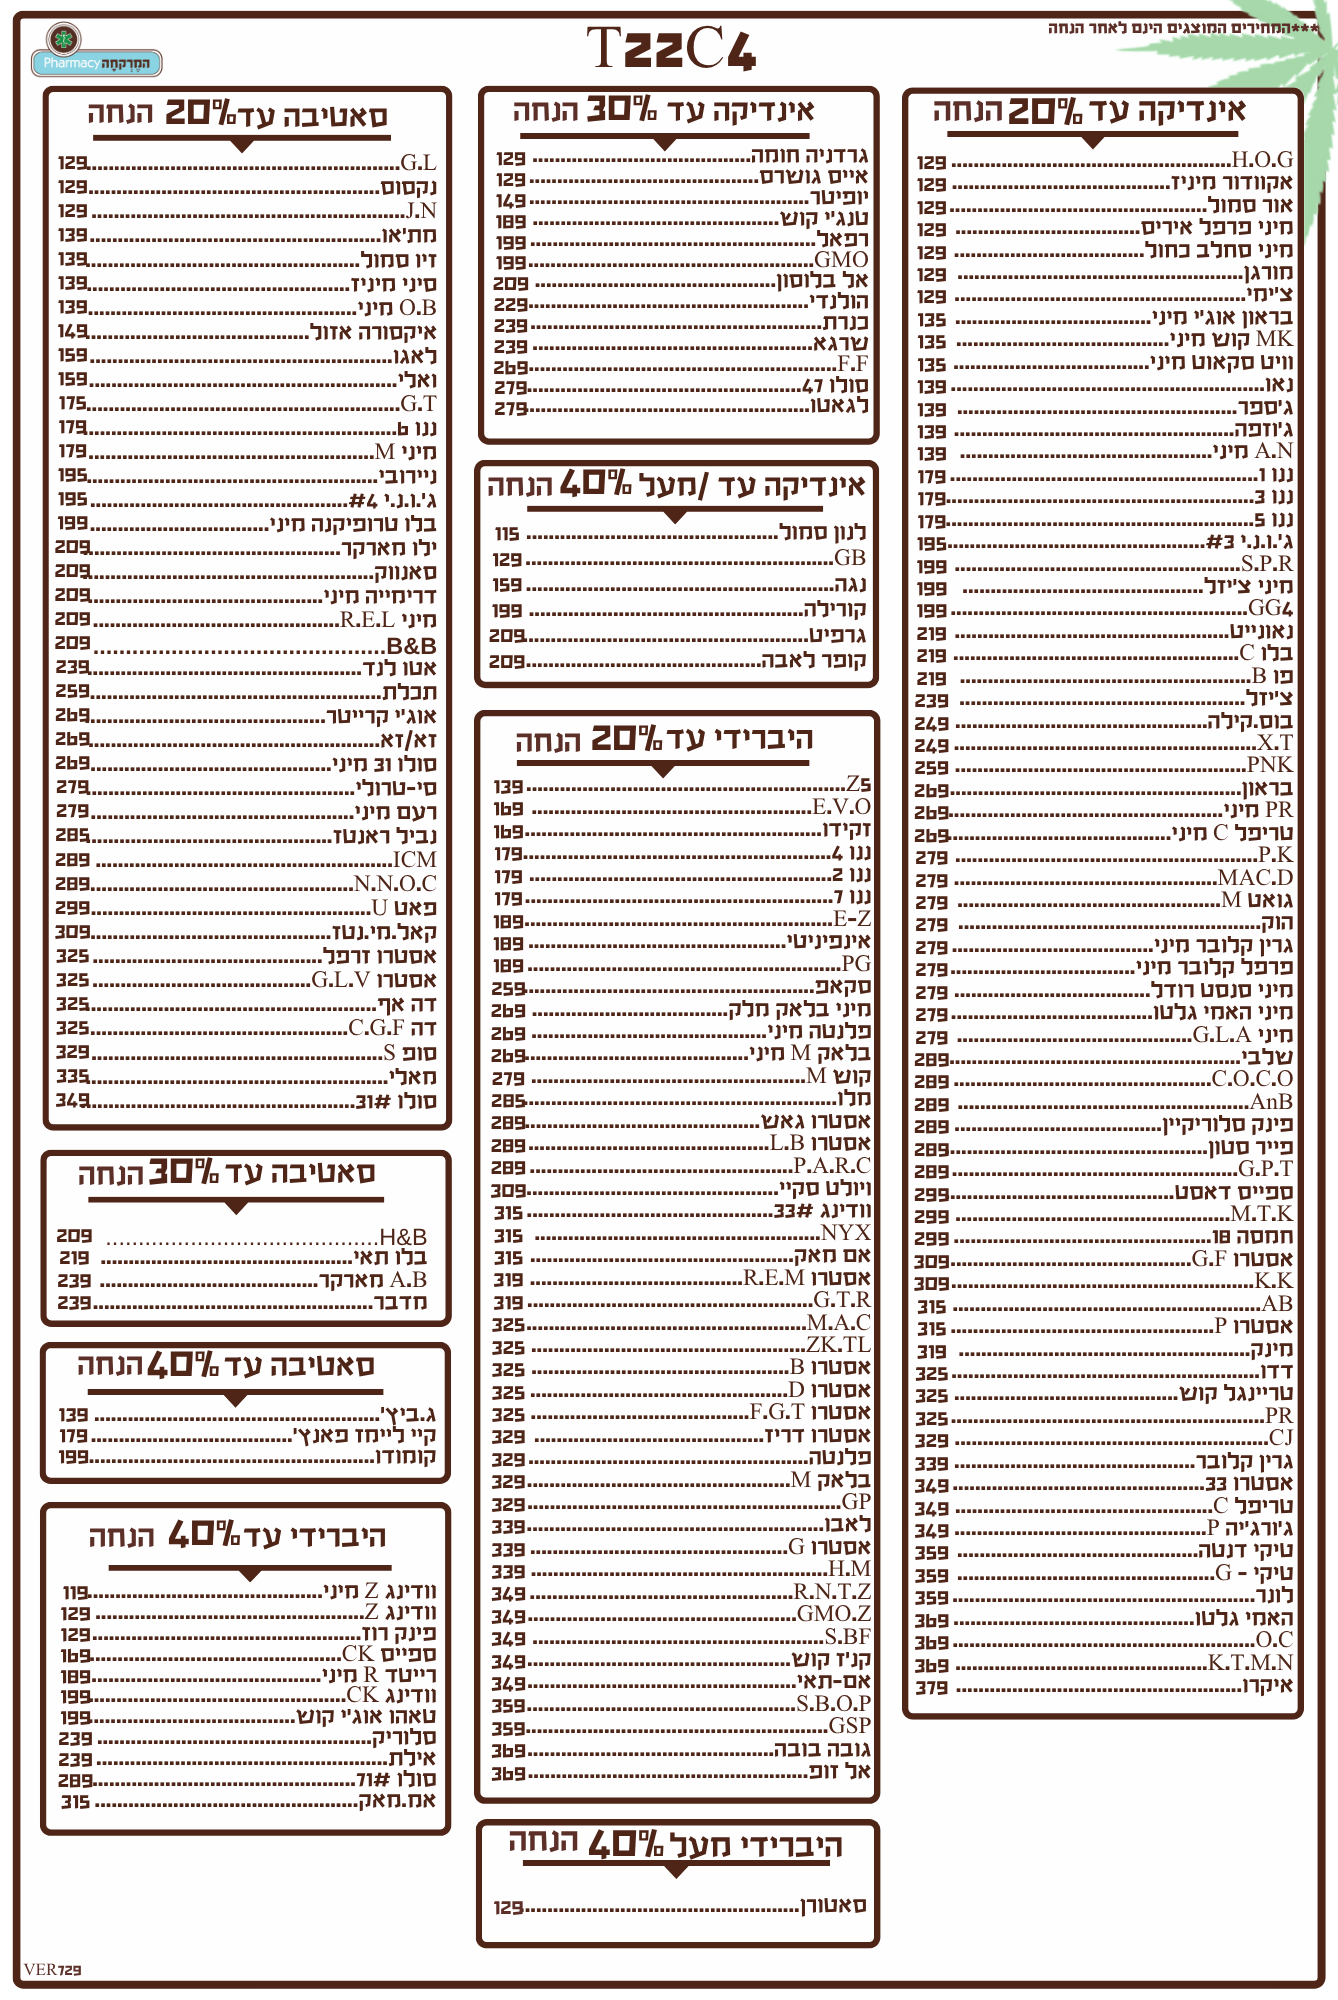 ***המחירים המוצגים הינם לאחר הנחה
T22C4
Pharmacy המֶרְקחָה
אינדיקה עד 20% הנחה
H.O.G 129
אקוודור מיניז 129
אור סמול 129
מיני פרפל איריס 129
מיני סחלב כחול 129
מורגן 129
צ'ימי 129
בראון אוג'י מיני 135
MK קוש מיני 135
וויט סקאוט מיני 135
נאו 139
ג'ספר 139
ג'וזפה 139
A.N מיני 139
ננו 1 179
ננו 3 179
ננו 5 179
ג'.ו.נ.י 3# 195
S.P.R 199
מיני צ'יזל 199
GG4 199
נאונייט 219
בלו C 219
פו B 219
צ'יזל 239
בוס.קילה 249
X.T 249
PNK 259
בראון 269
PR מיני 269
טריפל C מיני 269
P.K 279
MAC.D 279
גואט M 279
הוק 279
גרין קלובר מיני 279
פרפל קלובר מיני 279
מיני סנסט רודל 279
מיני האמי גלטו 279
מיני G.L.A 279
שלבי 289
C.O.C.O 289
AnB 289
פינק סלוריקיין 289
פייר סטון 289
G.P.T 289
ספייס דאסט 299
M.T.K 299
חמסה 18 299
אסטרו G.F 309
K.K 309
AB 315
אסטרו P 315
מינק 319
דדו 325
טריינגל קוש 325
PR 325
CJ 329
גרין קלובר 339
אסטרו 33 349
טריפל C 349
ג'ורג'יה P 349
טיקי דנטה 359
טיקי - G 359
לונר 359
האמי גלטו 369
O.C 369
K.T.M.N 369
איקרו 379
אינדיקה עד 30% הנחה
גרדניה חומה 129
אייס גושרס 129
יופיטר 149
טנג'י קוש 189
רפאל 199
GMO 199
אל בלוסון 209
הולנדי 229
כנרת 239
שרגא 239
F.F 269
סולו 47 279
לגאטו 279
אינדיקה עד /מעל 40% הנחה
לנון סמול 115
GB 129
נגה 159
קורילה 199
גרפיט 209
קופר לאבה 209
היברידי עד 20% הנחה
Z5 139
E.V.O 169
זקידו 169
ננו 4 179
ננו 2 179
ננו 7 179
E-Z 189
אינפיניטי 189
PG 189
סקאפ 259
מיני בלאק מלק 269
פלנטה מיני 269
בלאק M מיני 269
קוש M 279
מלו 285
אסטרו גאש 289
אסטרו L.B 289
P.A.R.C 289
ויולט סקיי 309
וודינג 33# 315
NYX 315
אם מאק 315
אסטרו R.E.M 319
G.T.R 319
M.A.C 325
ZK.TL 325
אסטרו B 325
אסטרו D 325
אסטרו F.G.T 325
אסטרו דריז 329
פלנטה 329
בלאק M 329
GP 329
לאבו 339
אסטרו G 339
H.M 339
R.N.T.Z 349
GMO.Z 349
S.BF 349
קנ'ז קוש 349
אם-תאי 349
S.B.O.P 359
GSP 359
גובה בובה 369
אל זופ 369
היברידי מעל 40% הנחה
סאטורן 129
סאטיבה עד 20% הנחה
G.L 129
נקסוס 129
J.N 129
מת'או 139
זיו סמול 139
סיני מיניז 139
O.B מיני 139
איקסורה אזול 149
לאגו 159
ואלי 159
G.T 175
ננו 6 179
מיני M 179
ניירובי 195
ג'.ו.נ.י 4# 195
בלו טרופיקנה מיני 199
ילו מארקר 209
סאנווק 209
דרימייה מיני 209
מיני R.E.L 209
B&B 209
אטו לנד 239
תכלת 259
אוג'י קרייטר 269
זא/זא 269
סולו 31 מיני 269
סי-טרולי 279
רעם מיני 279
נביל ראנטז 285
ICM 289
N.N.O.C 289
פאט U 299
קאל.מי.נטז 309
אסטרו זרפל 325
אסטרו G.L.V 325
דה אף 325
דה C.G.F 325
סופ S 329
מאלי 335
סולו 31# 349
סאטיבה עד 30% הנחה
H&B 209
בלו תאי 219
A.B מארקר 239
מדבר 239
סאטיבה עד 40% הנחה
ג.ביץ' 139
קיי לייחז פאנץ' 179
קומודו 199
היברידי עד 40% הנחה
וודינג Z מיני 119
וודינג Z 129
פינק רוז 129
ספייס CK 169
רייטד R מיני 189
וודינג CK 199
טאהו אוג'י קוש 199
סלוריק 239
אילת 239
סולו 71# 289
אח.מאק 315
VER729